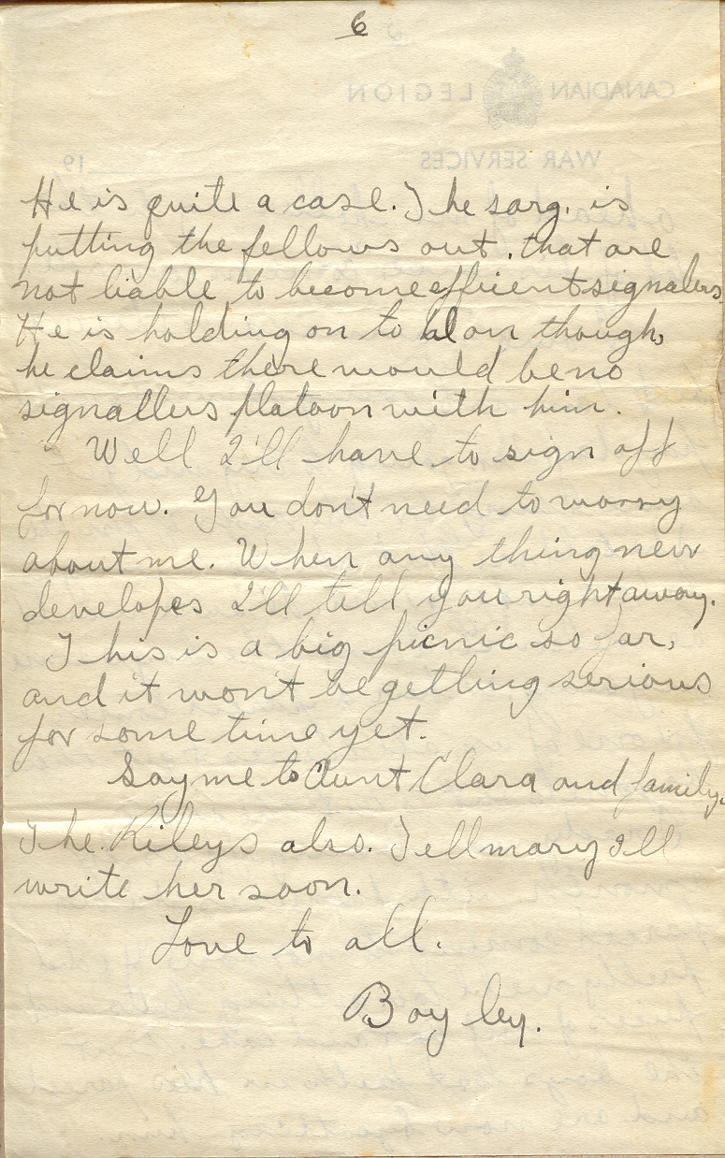 6
CANADIAN LEGION
WAR SERVICES
19
He is quite a case. The sarg. is
putting the fellows out, that are
not liable to become efficient signalers.
He is holding on to Alon though,
he claims there would be no
signallers platoon with him.
Well I'll have to sign off
for now. You don't need to worry
about me. When any thing new
developes I'll tell you right away.
This is a big picnic so far,
and it won't be getting serious
for some time yet.
Say me to Aunt Clara and family.
The Rileys also. Tell mary I'll
write her soon.
Love to all.
Boyley.